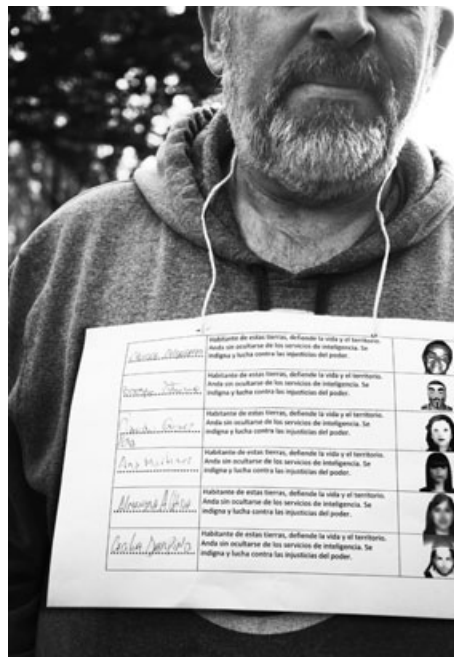 Habitante de estas tierras, defiende la vida y el territorio.
Anda sin ocultarse de los servicios de inteligencia. Se
indigna y lucha contra las injusticias del poder.
Habitante de estas tierras, defiende la vida y el territorio.
Anda sin ocultarse de los servicios de inteligencia. Se
indigna y lucha contra las injusticias del poder.
Habitante de estas tierras, defiende la vida y el territorio.
Anda sin ocultarse de los servicios de inteligencia. Se
indigna y lucha contra las injusticias del poder.
Ana
Habitante de estas tierras, defiende la vida y el territorio.
Anda sin ocultarse de los servicios de inteligencia. Se
indigna y lucha contra las injusticias del poder.
Habitante de estas tierras, defiende la vida y el territorio.
Anda sin ocultarse de los servicios de inteligencia. Se
indigna y lucha contra las injusticias del poder.
Habitante de estas tierras, defiende la vida y el territorio.
Anda sin ocultarse de los servicios de inteligencia. Se
indigna y lucha contra las injusticias del poder.